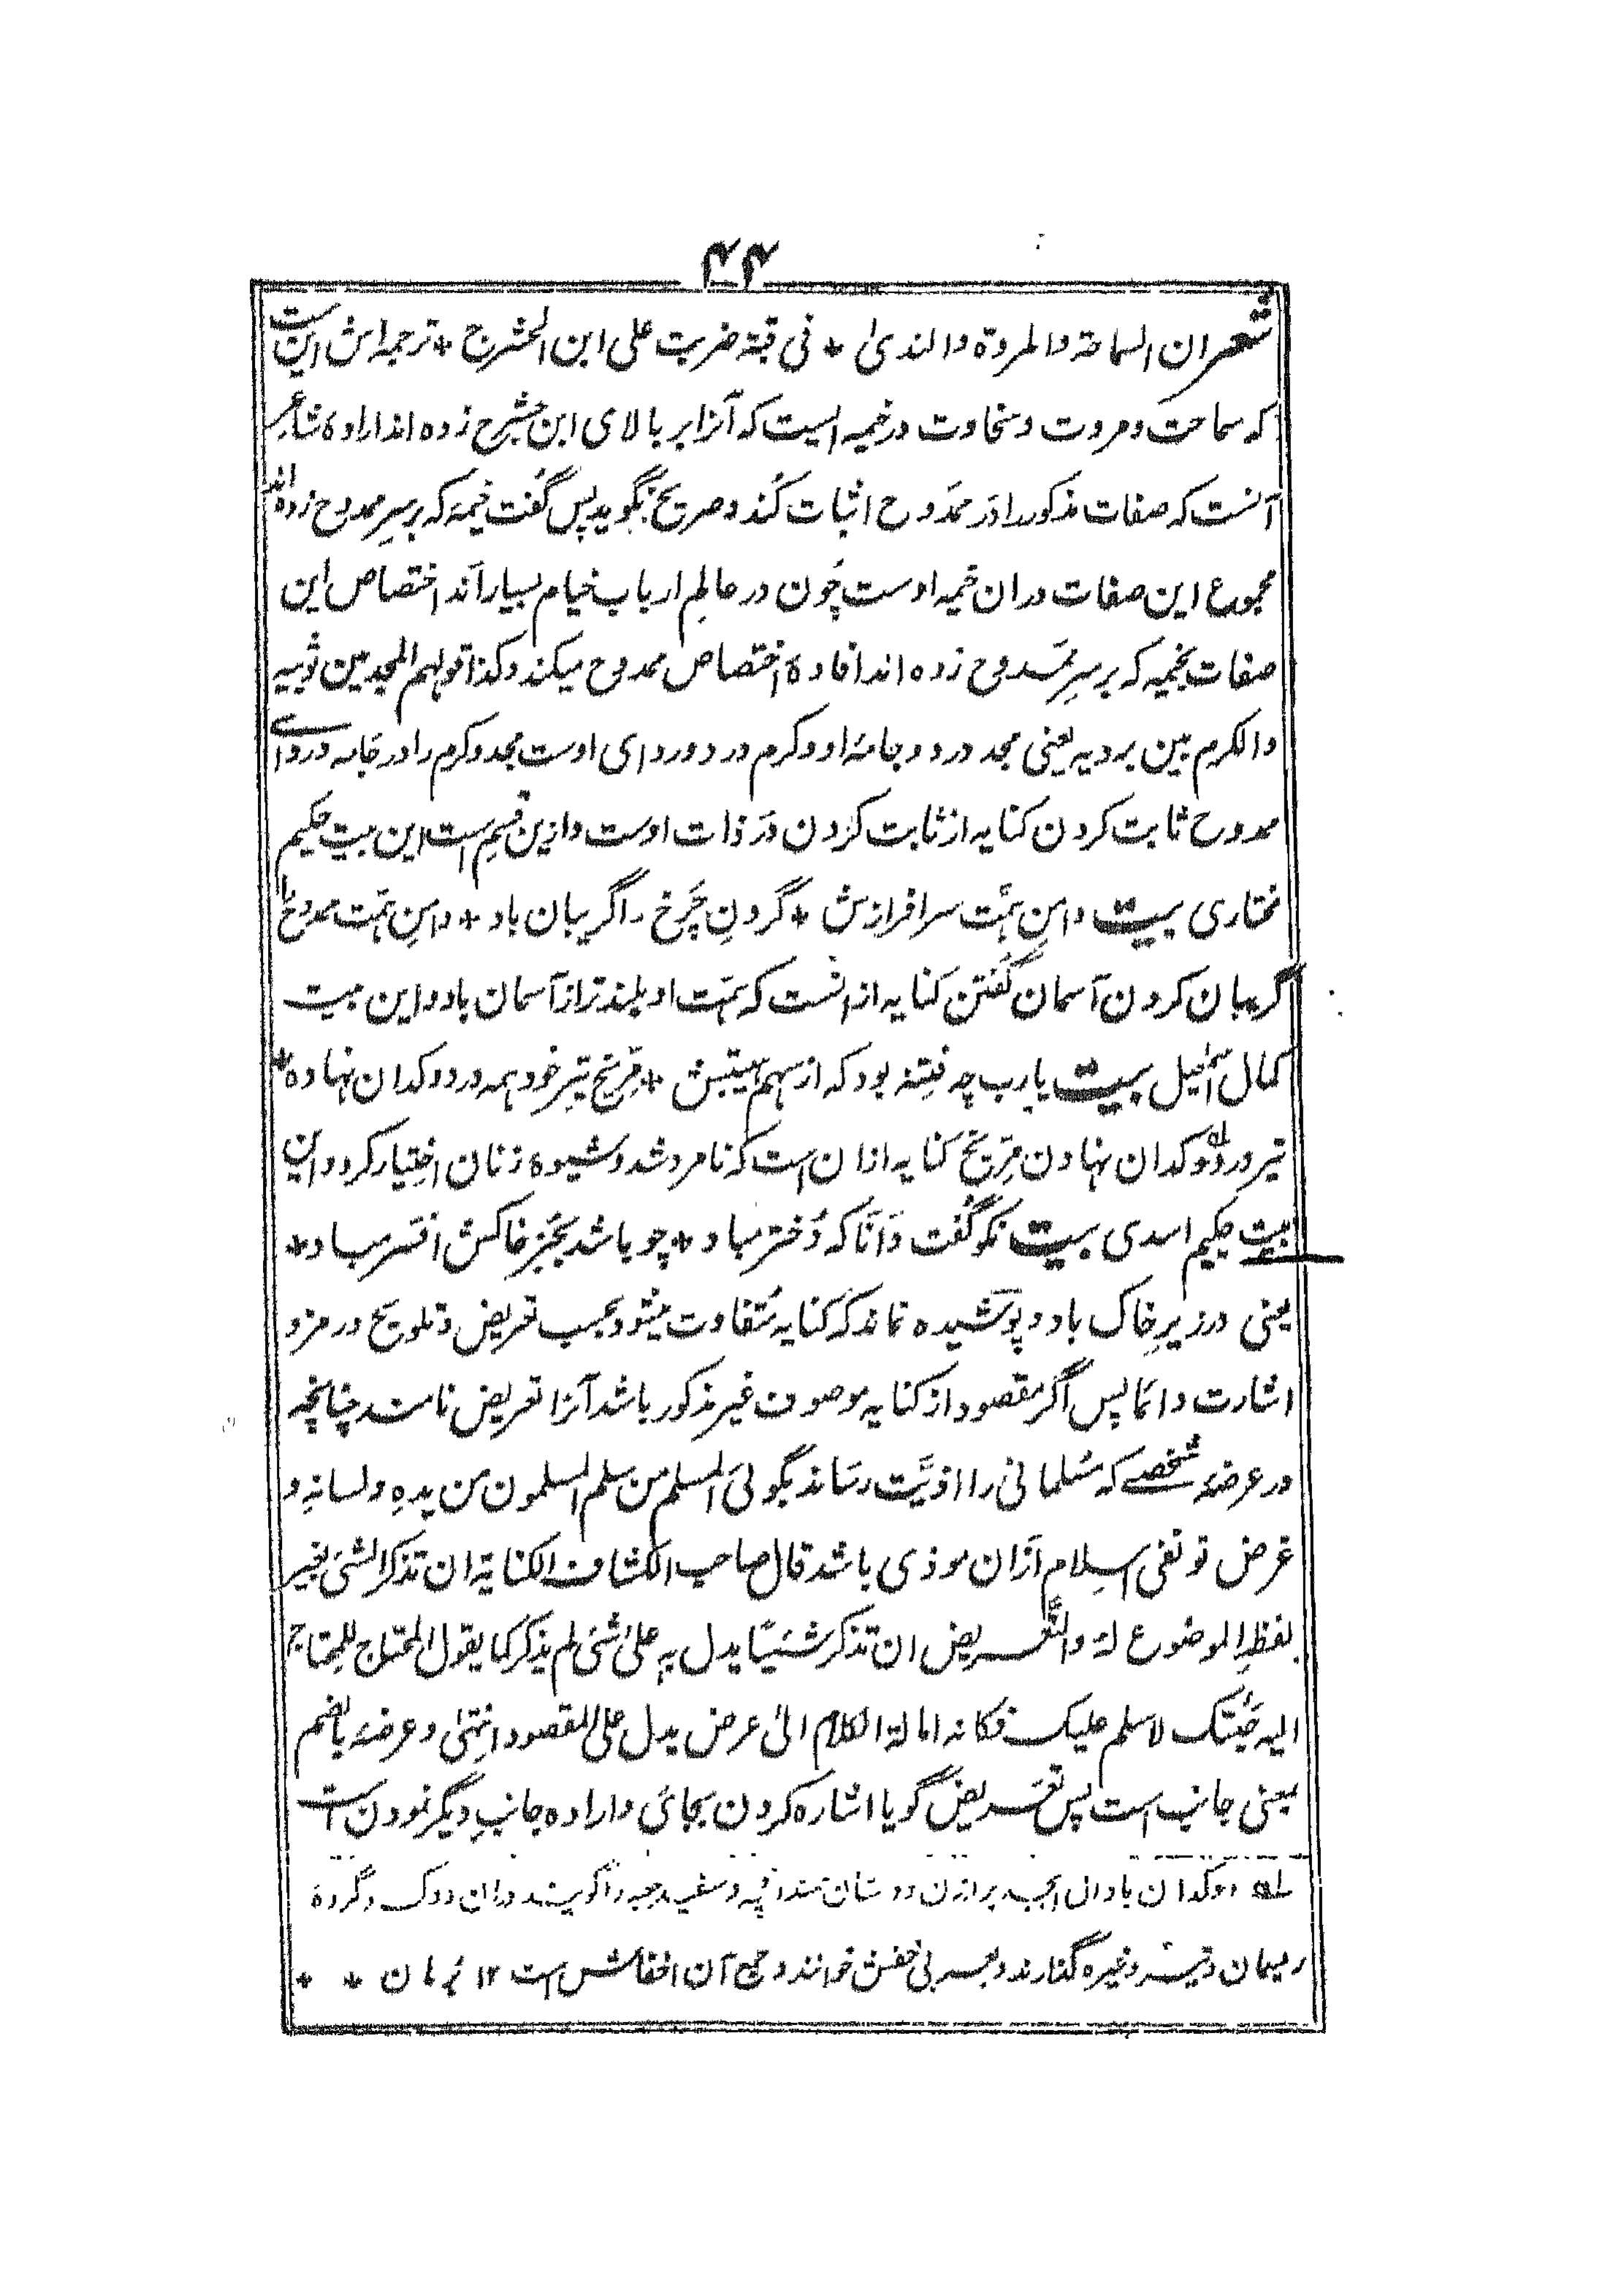 ۴۴
شعر ان السماحة والمروة والندیٰ * فی قبة ضربت علی ابن الحشرج * ترجمه اش این ست
که سماحت و مروت و سخاوت در خیمه ایست که آنرا بر بالای ابن حشرج زده اند اراده شاعر
آنست که صفات مذکور را در ممدوح اثبات کند و صریح نگوید پس گفت خیمهٔ که بر سر ممدوح زده اند
مجموع این صفات در ان خیمه اوست چون در عالم ارباب خیام بسیار اند اختصاص این
صفات بخیمه که بر سر ممدوح زده اند افادهٔ اختصاص ممدوح میکند و کذا قولهم المجد بین ثوبیه
والکرم بین بردیه یعنی مجد در دو جامهٔ او و کرم در دو ردای اوست مجد و کرم را در جامه و ردای
ممدوح ثابت کردن کنایه از ثابت کردن در ذات اوست و ازین قسم است این بیت حکیم
مختاری بیت دامن همت سرافرازش * گردن چرخ را گریبان باد * دامن همت ممدوح را
گریبان گردن آسمان گفتن کنایه از انست که همت او بلند تر از آسمان باد و این بیت
کمال اسمٰعیل بیت یا رب چه فتنه بود که از سهم هیبتش * مریخ تیر خود همه در دوکدان نهاده *
تیر در دوکدان نهادن مریخ کنایه ازان است که نامرد شد و شیوهٔ زنان اختیار کرد و این
بیت حکیم اسدی بیت نکو گفت دانا که دختر مباد * چو باشد بجز خاکش افسر مباد *
یعنی در زیر خاک باد و پوشیده نماند که کنایه متفاوت میشود بحسب تعریض و تلویح و رمز و
اشارت و ایما پس اگر مقصود از کنایه موصوف غیر مذکور باشد آنرا تعریض نامند چنانچه
در عرضهٔ شخصے که مسلمانی را اذیت رساند بگوئی المسلم من سلم المسلمون من یده ولسانه و
غرض تو نفی اسلام ازان موذی باشد قال صاحب الکشاف الکنایة ان تذکر الشئ بغیر
لفظه الموضوع له والتعریض ان تذکر شیئا یدل به علی شئ لم یذکر کما یقول المحتاج للمحتاج
الیه جئتک لا سلم علیک فکانه امالة الکلام الی عرض یدل علی المقصود انتهیٰ و عرضه بالضم
بمعنی جانب است پس تعریض گویا اشاره کردن بجائی و اراده جانب دیگر نمودن است
له دوکدان با دال ابجد بر وزن دوستان سند و سفید جبه را گویند دران دوک و گروهٔ
ریسمان و غیره گذارند و بعربی خفش خوانند و جمع آن اخفاش است ۱۲ برهان * *